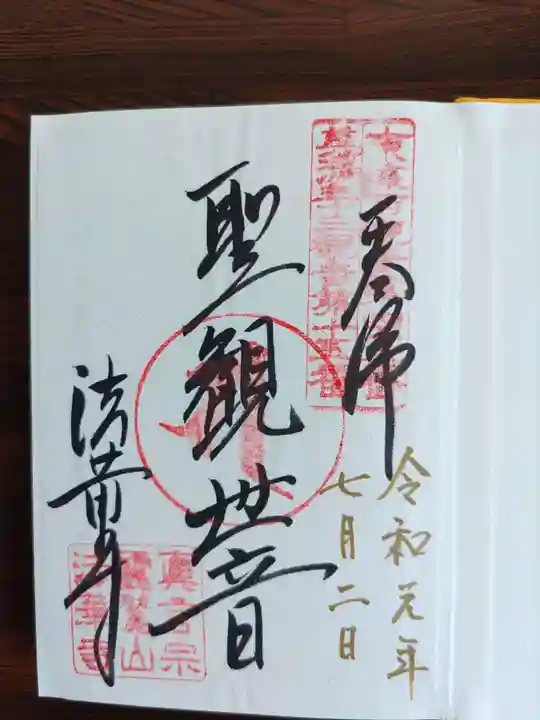 奉拝
令和元年
七月二日
聖観世音
法華寺
真言宗
霊鷲山
法華寺